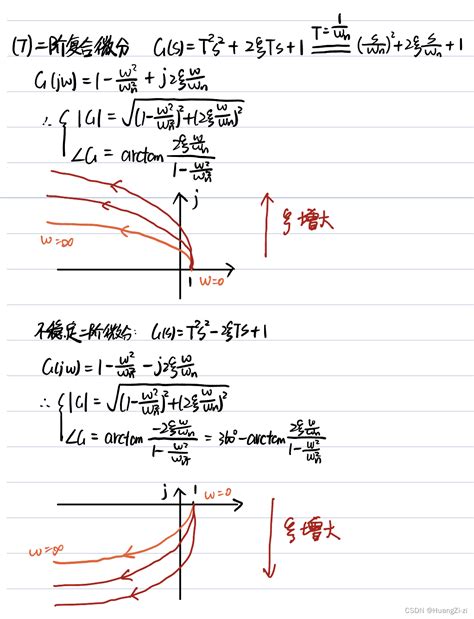 (7) 二阶复合微分 G(s)=T²s²+2ξTs+1 ==(T=1/ωn)== (s/ωn)²+2ξ s/ωn+1
G(jω)=1-ω²/ωn²+j2ξ ω/ωn
∴ { |G|=√((1-ω²/ωn²)²+(2ξ ω/ωn)²)
∠G=arctan (2ξ ω/ωn)/(1-ω²/ωn²)
j
ξ增大
ω=∞
1 ω=0
不稳定二阶微分: G(s)=T²s²-2ξTs+1
G(jω)=1-ω²/ωn²-j2ξ ω/ωn
∴ { |G|=√((1-ω²/ωn²)²+(2ξ ω/ωn)²)
∠G=arctan (-2ξ ω/ωn)/(1-ω²/ωn²)=360°-arctan (2ξ ω/ωn)/(1-ω²/ωn²)
j 1 ω=0
ω=∞
ξ增大
CSDN @HuangZi-zi